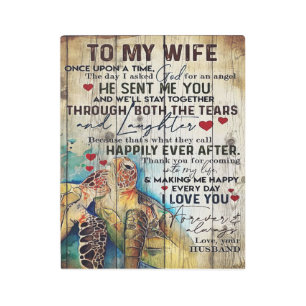 TO MY WIFE
ONCE UPON A TIME,
The day I asked God for an angel
HE SENT ME YOU
AND WE'LL STAY TOGETHER
THROUGH BOTH THE TEARS
and Laughter
Because that's what they call
HAPPILY EVER AFTER.
Thank you for coming
into my life,
& MAKING ME HAPPY
EVERY DAY
I LOVE YOU
Forever &
always,
Love, your
HUSBAND